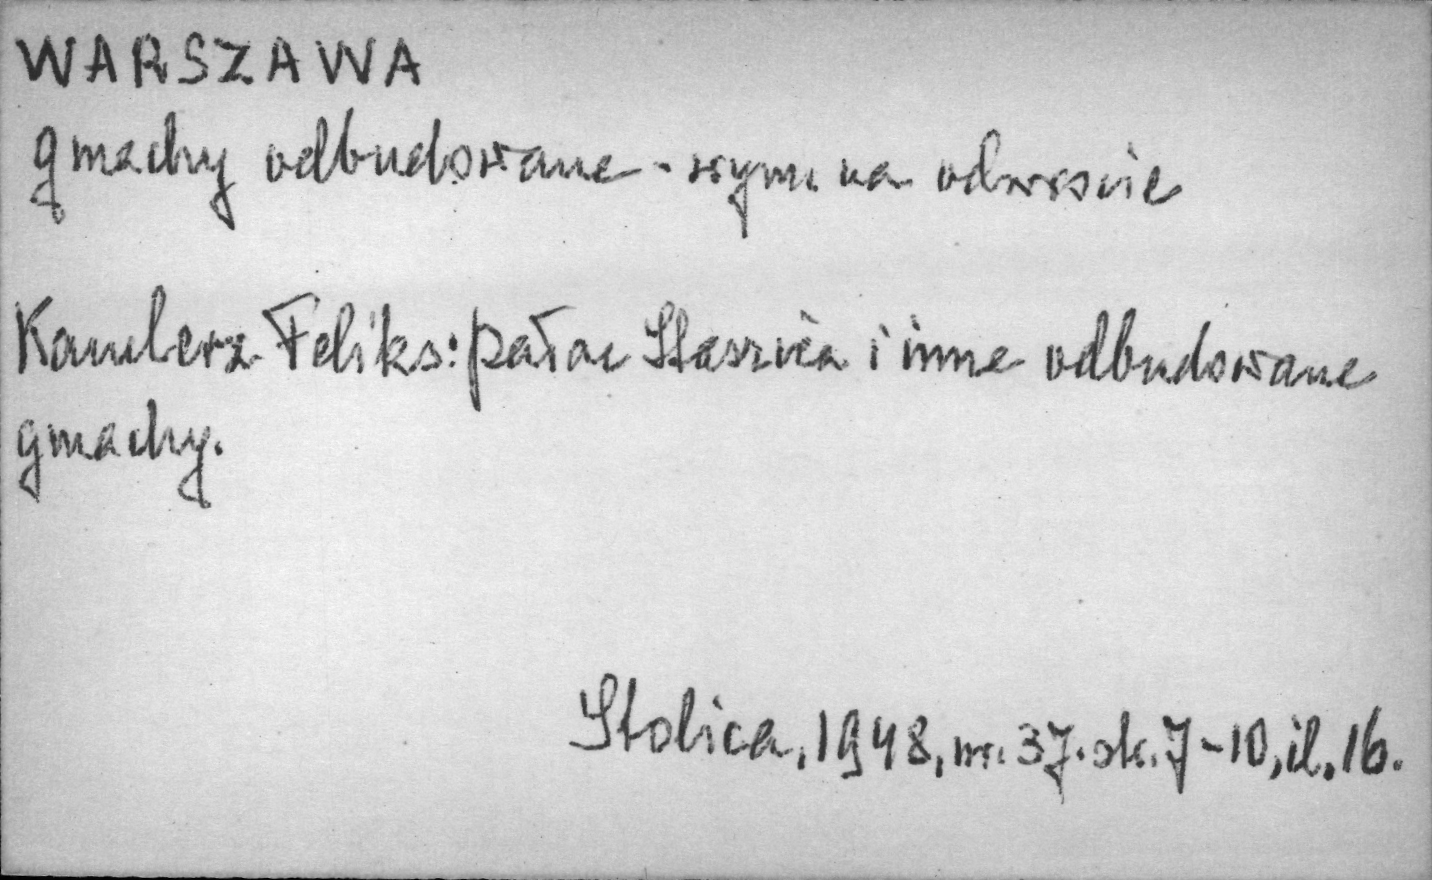 WARSZAWA
gmachy odbudowane - wym. na odwrocie
Kanclerz Feliks: pałac Staszica i inne odbudowane
gmachy.
Stolica, 1948, nr. 37. str. 7-10, il. 16.